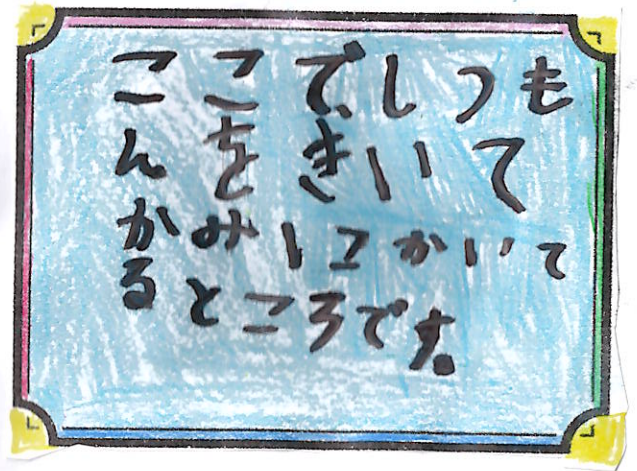 ここでしつも
んをきいて
かみにかいて
るところです。